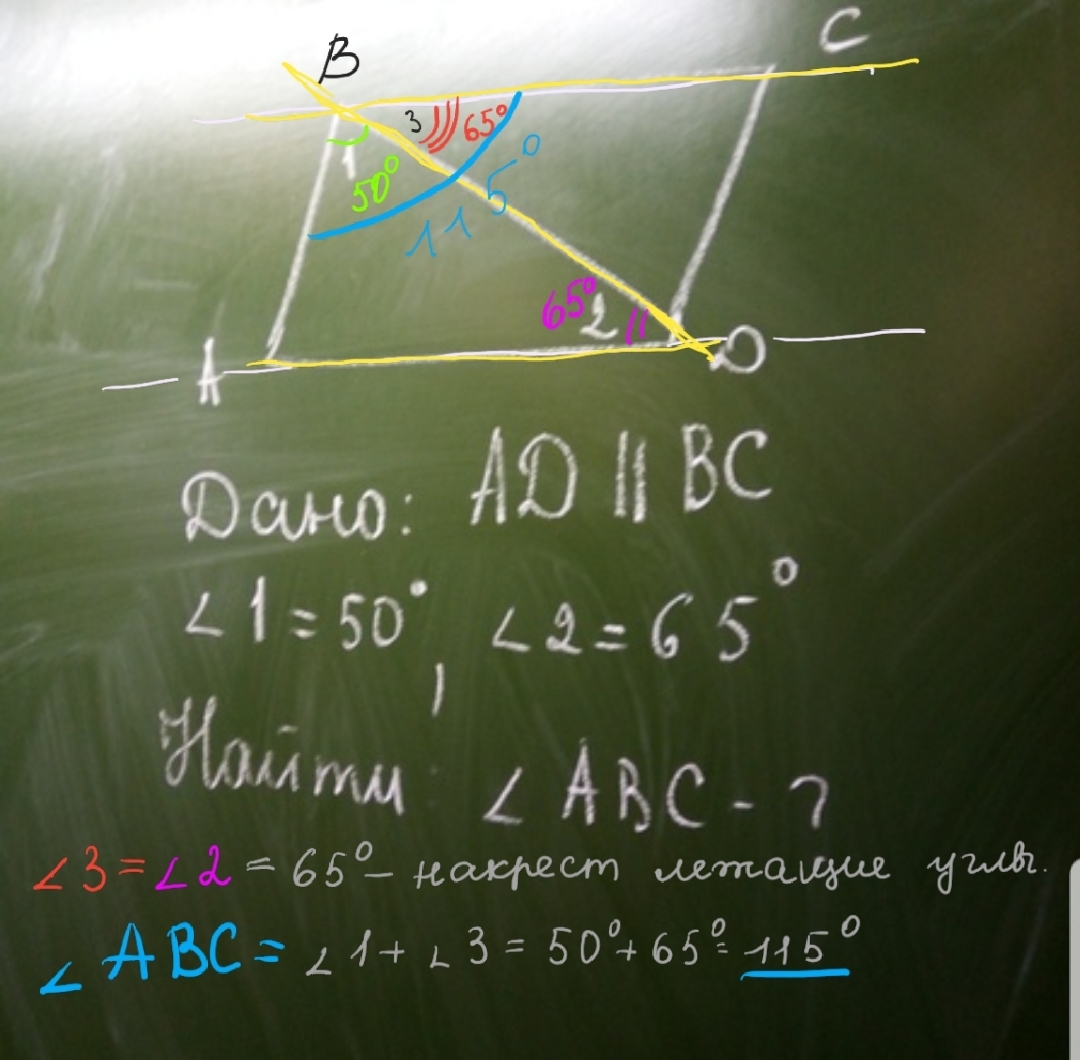 B
C
3 65°
1
50°
115°
65°
2
A
D
Дано: AD || BC
∠1=50°, ∠2=65°
Найти: ∠ABC-?
∠3=∠2=65°- накрест лежащие углы.
∠ABC=∠1+∠3=50°+65°=115°